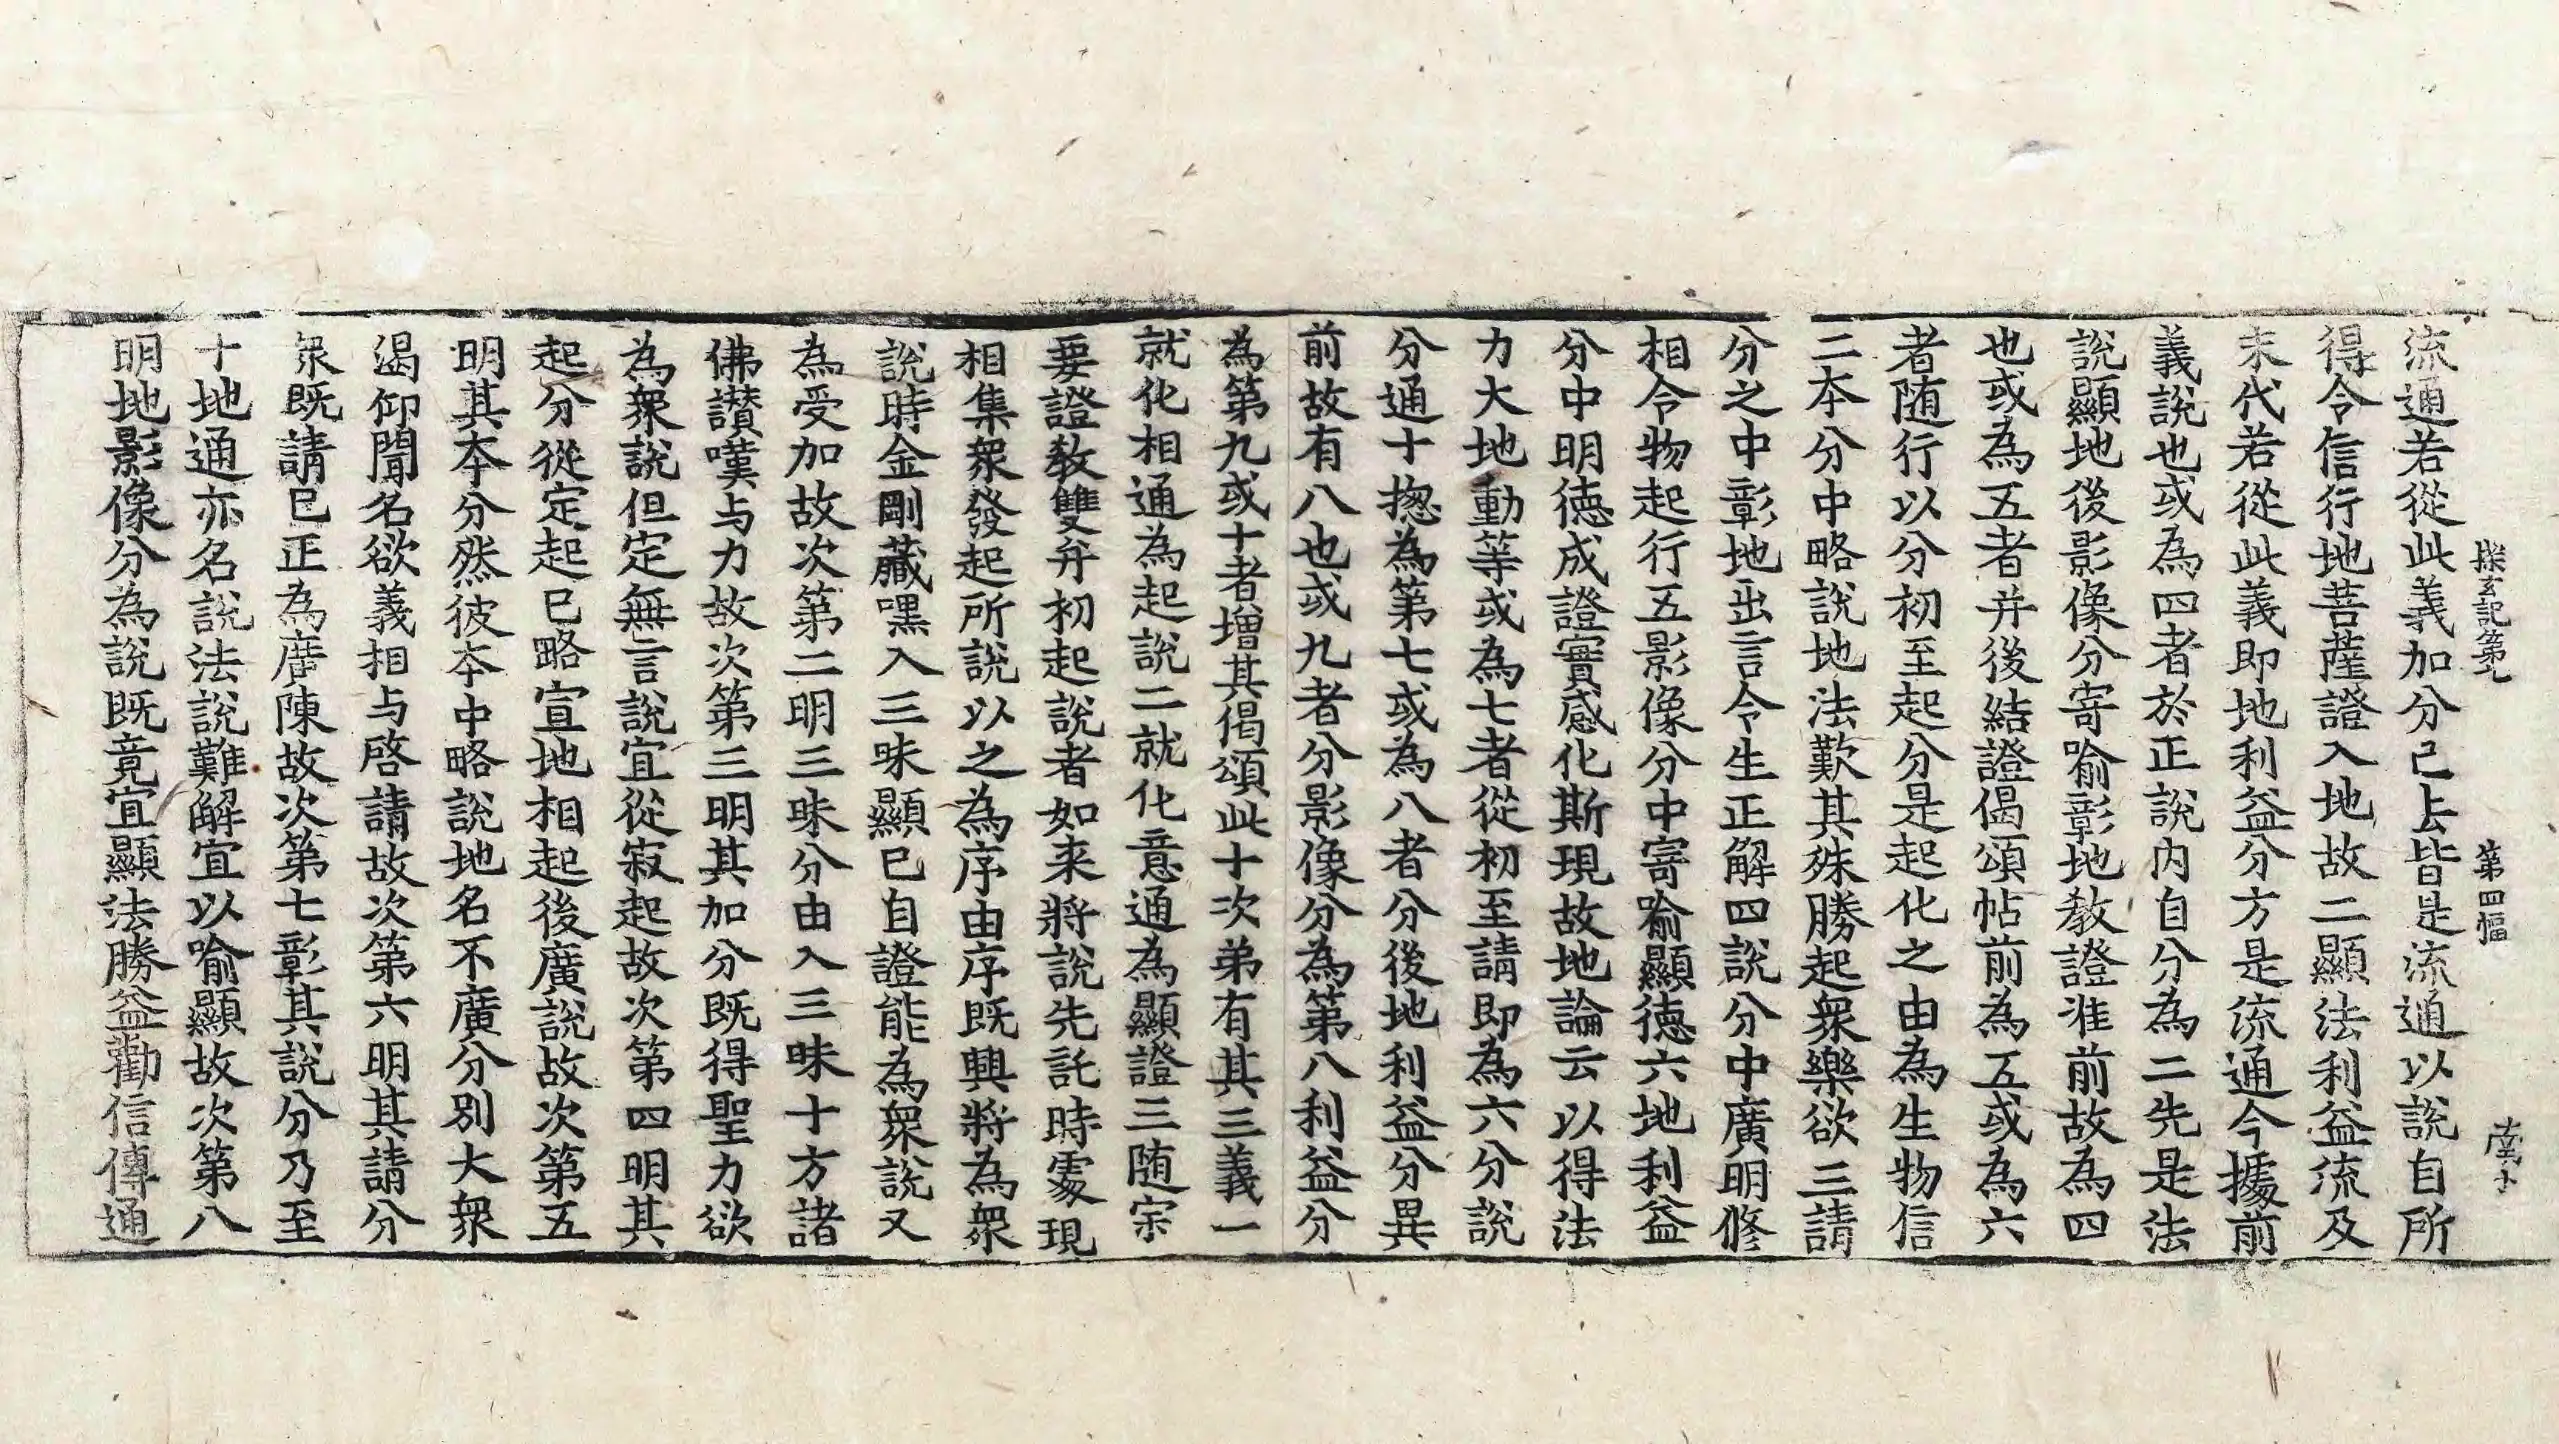 探玄記第九 第四幅 南
流通若從此義加分已上皆是流通以說自所
得令信行地菩薩證入地故二顯法利益流及
末代若從此義即地利益分方是流通今據前
義說也或為四者於正說內自分為二先是法
說顯地後影像分寄喻彰地教證准前故為四
也或為五者并後結證偈頌帖前為五或為六
者随行以分初至起分是起化之由為生物信
二本分中略說地法歎其殊勝起衆樂欲三請
分之中彰地出言令生正解四說分中廣明修
相令物起行五影像分中寄喻顯德六地利益
分中明德成證實感化斯現故地論云以得法
力大地動等或為七者從初至請即為六分說
分通十揔為第七或為八者分後地利益分異
前故有八也或九者分影像分為第八利益分
為第九或十者增其偈頌此十次弟有其三義一
就化相通為起說二就化意通為顯證三随宗
要證教雙弁初起說者如来將說先託時處現
相集衆發起所說以之為序由序既興將為衆
說時金剛藏嘿入三昧顯已自證能為衆說又
為受加故次第二明三昧分由入三昧十方諸
佛讃嘆与力故次第三明其加分既得聖力欲
為衆說但定無言說宜從寂起故次第四明其
起分從定起已略宣地相起後廣說故次第五
明其本分然彼本中略說地名不廣分別大衆
渴仰聞名欲義相与啓請故次第六明其請分
衆既請已正為廣陳故次第七彰其說分乃至
十地通亦名說法說難解宜以喻顯故次第八
明地影像分為說既竟宜顯法勝益勸信傳通